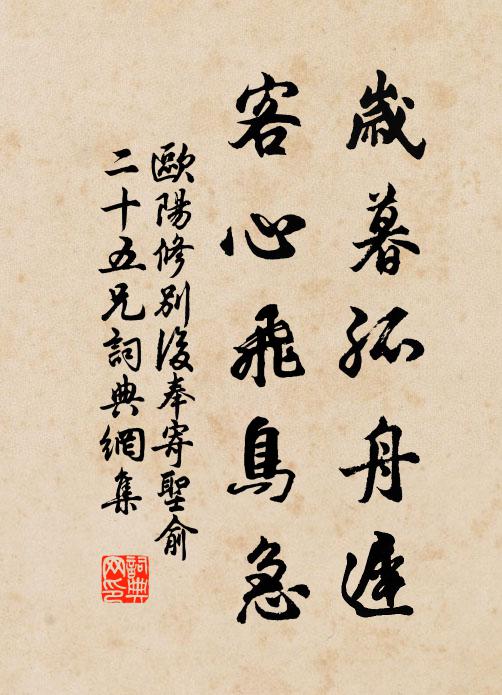 歲暮孤舟遲
客心飛鳥急
歐陽修別後奉寄聖俞
二十五兄詞典網集
詞典
网印